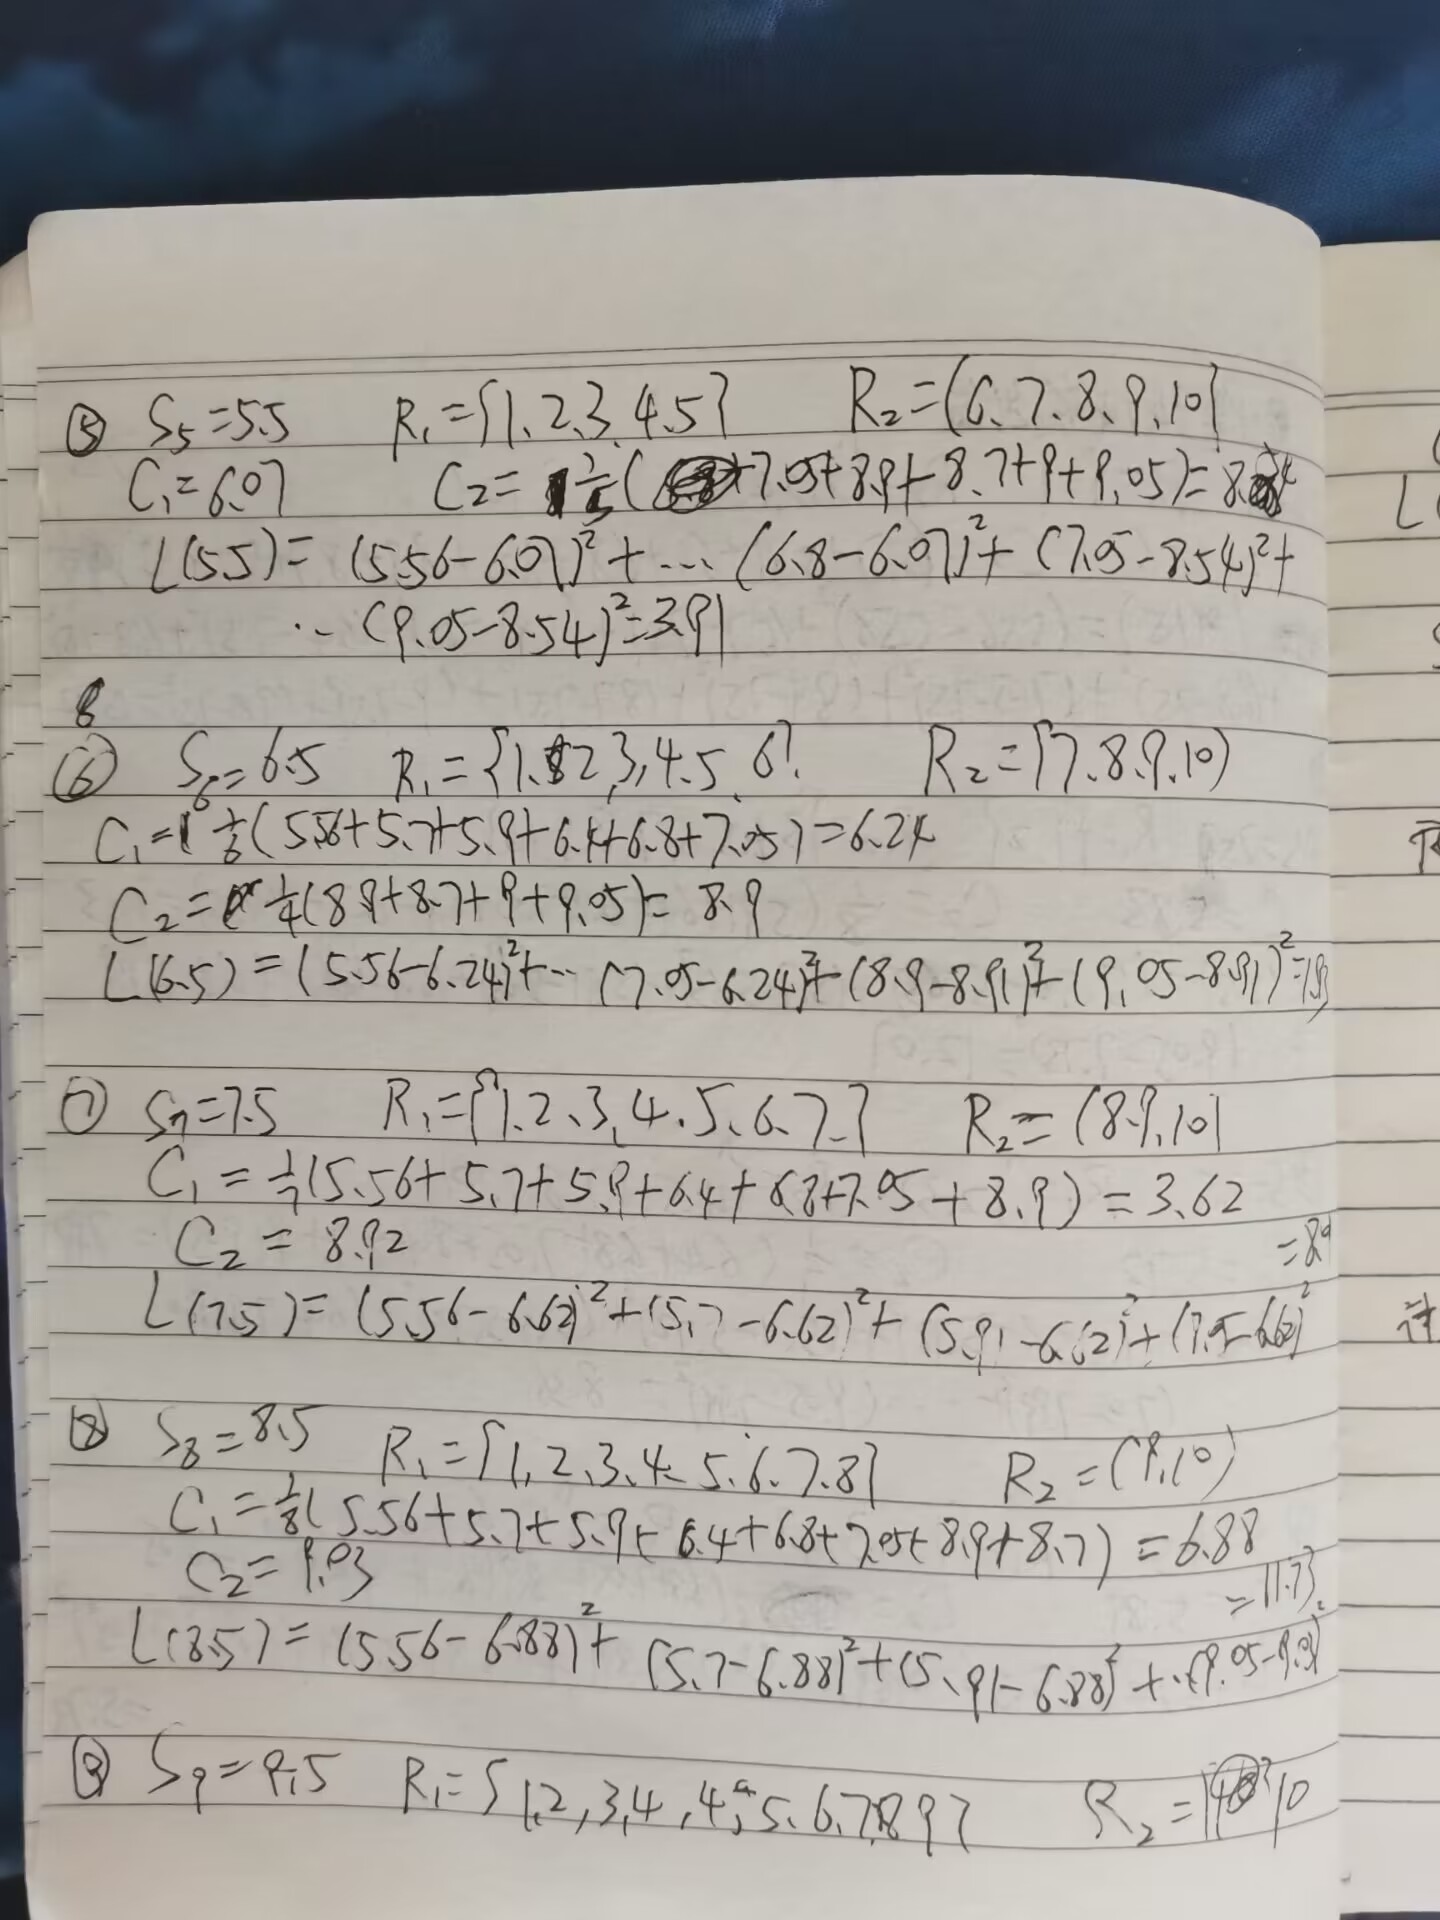 ⑤ S₅=5.5 R₁={1.2.3.4.5} R₂={6.7.8.9.10}
C₁=6.07 C₂= 1/5(7.05+8.9+8.7+9+9.05)=8.54
L(5.5)= (5.56-6.07)²+...(6.8-6.07)²+(7.05-8.54)²+
..(9.05-8.54)²=3.91
⑥ S₆=6.5 R₁={1.2,3,4.5.6} R₂={7.8.9.10}
C₁=1/6(5.56+5.7+5.9+6.4+6.8+7.05)=6.24
C₂=1/4(8.9+8.7+9+9.05)=8.9
L(6.5)=(5.56-6.24)²+...(7.05-6.24)²+(8.9-8.91)²+(9.05-8.91)²=1.93
⑦ S₇=7.5 R₁={1.2.3.4.5.6.7.} R₂={8.9.10}
C₁=1/7(5.56+5.7+5.9+6.4+6.8+7.05+8.9)=3.62
C₂=8.92
L(7.5)=(5.56-6.62)²+(5.7-6.62)²+(5.91-6.62)²+(7.5-6.62)²
⑧ S₈=8.5 R₁={1,2.3.4.5.6.7.8} R₂={9.10}
C₁=1/8(5.56+5.7+5.9+6.4+6.8+7.05+8.9+8.7)=6.88
C₂=9.03
=11.73
L(8.5)=(5.56-6.88)²+(5.7-6.88)²+(5.91-6.88)²+..(9.05-9.03)²
⑨ S₉=9.5 R₁={1,2,3,4,4,5.6.7.8 9} R₂={10